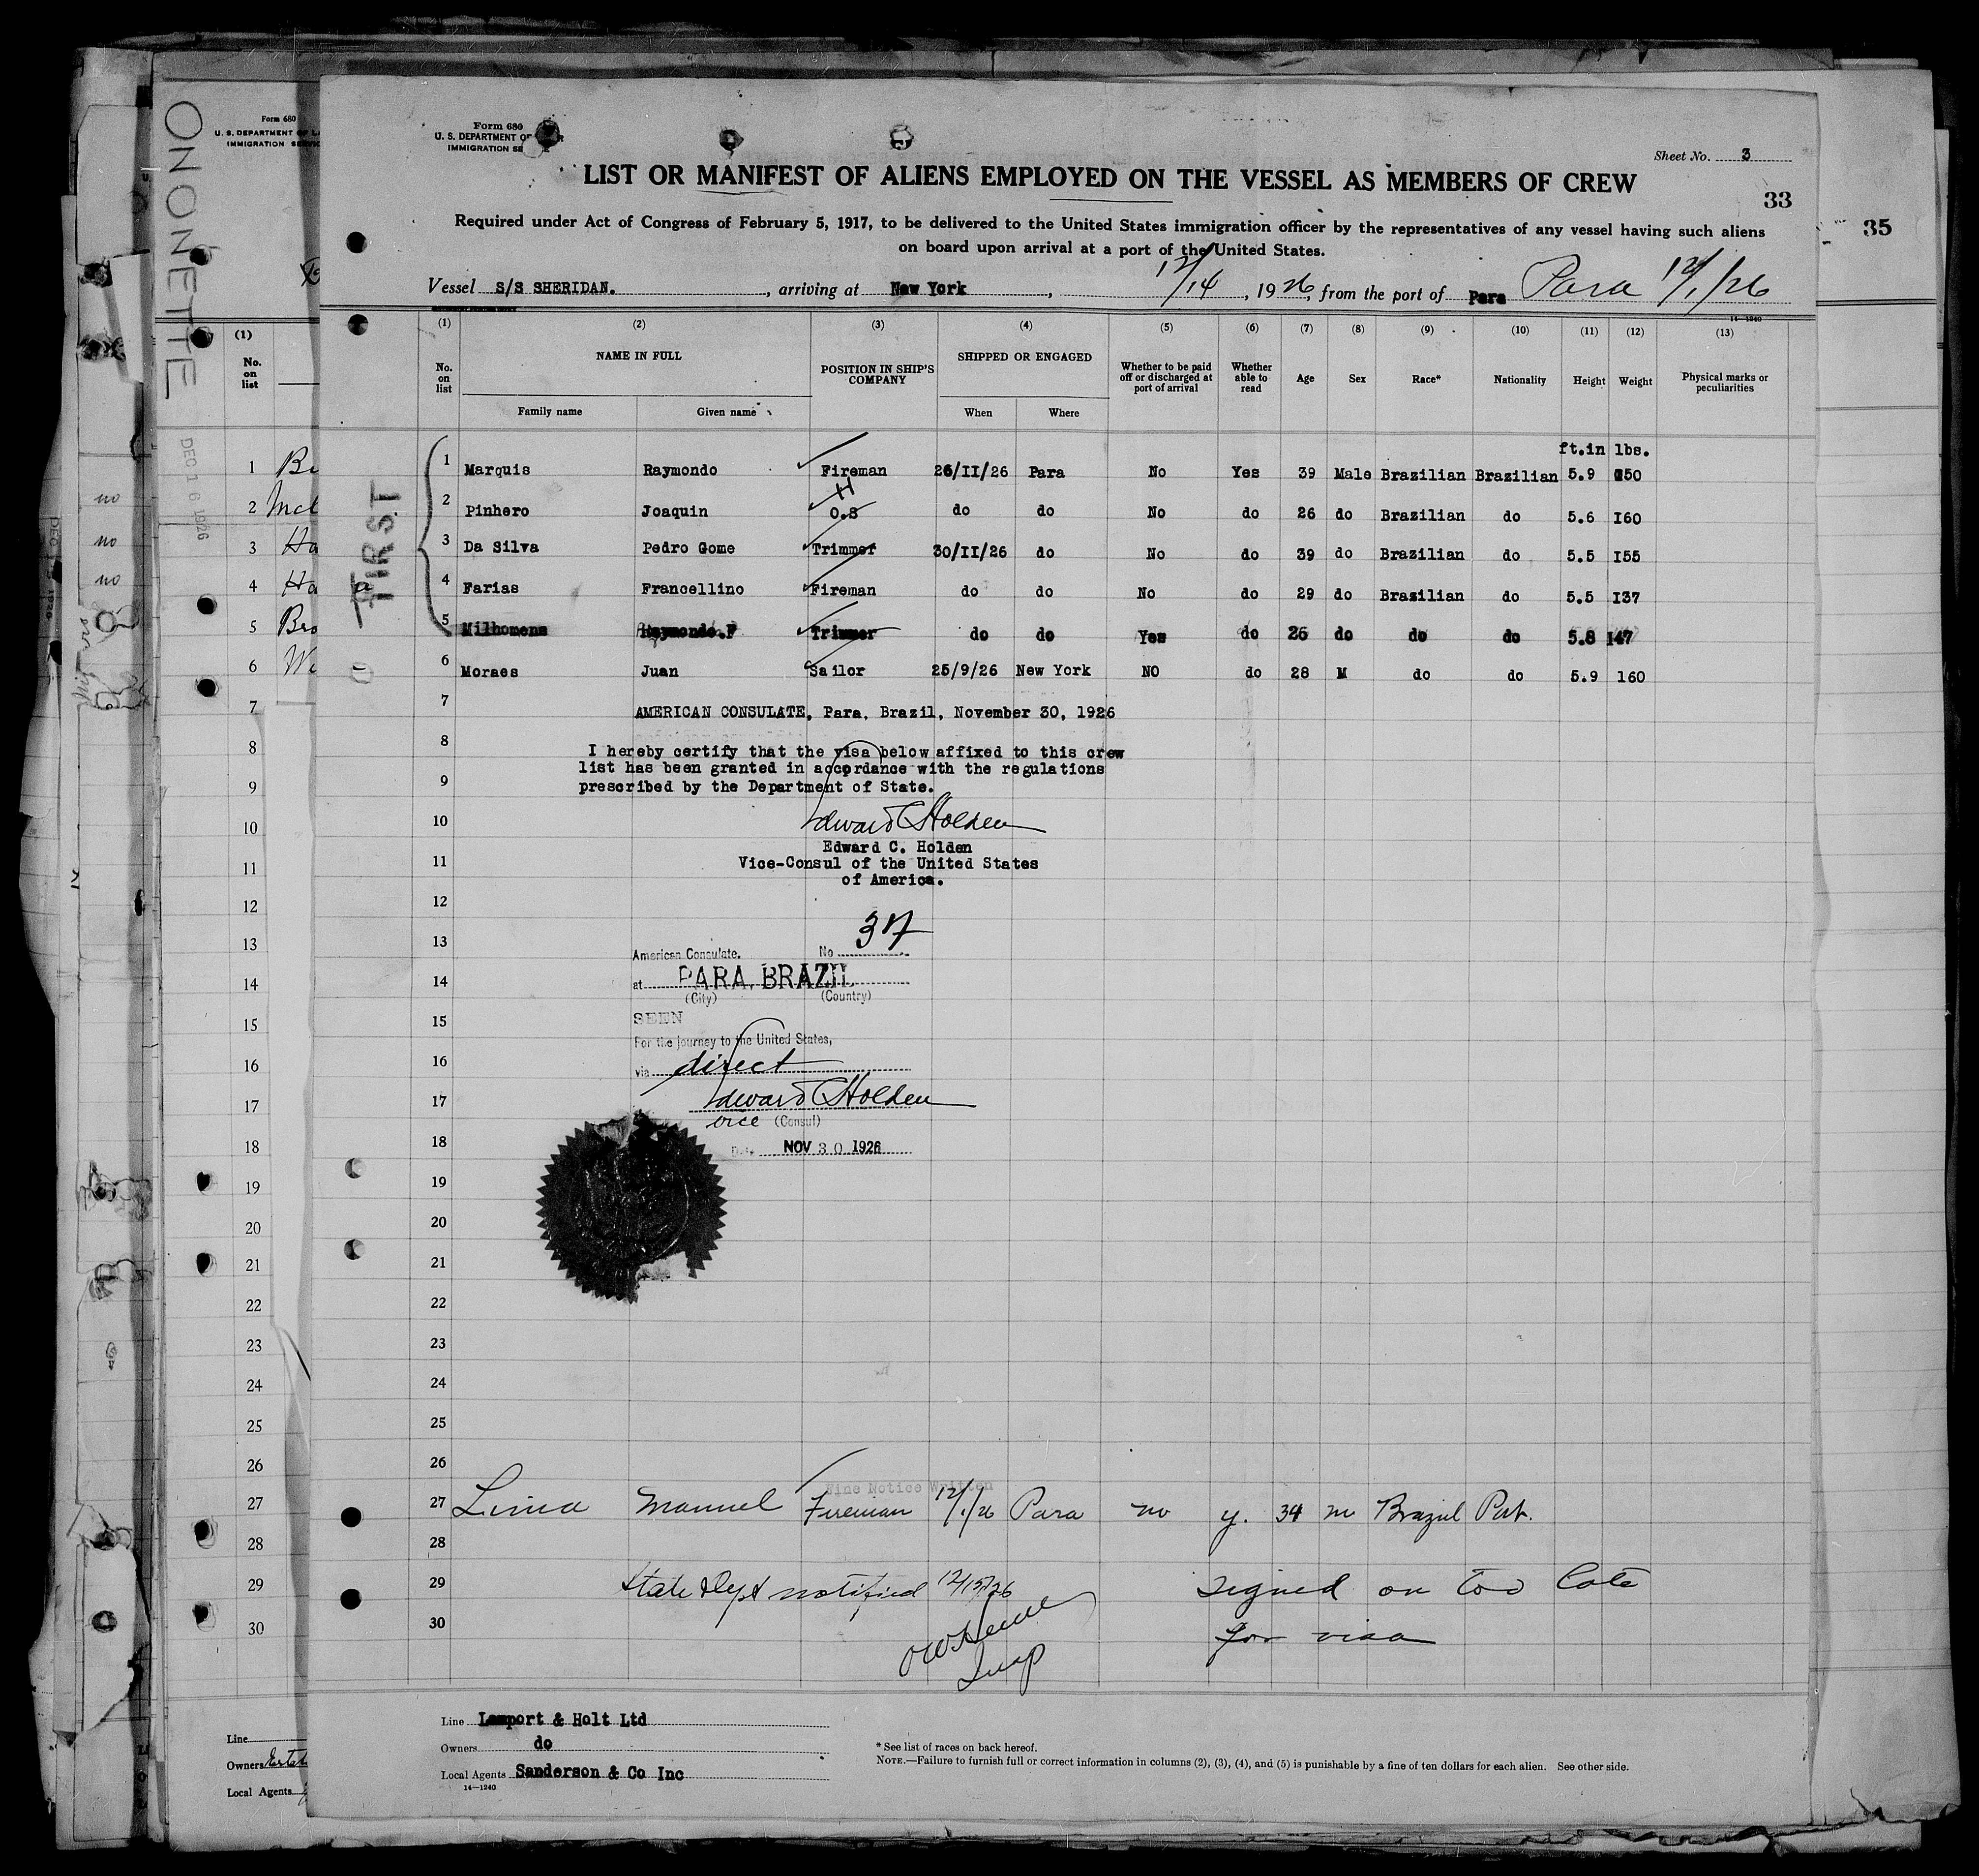 Form 680
U. S. DEPARTMENT OF
IMMIGRATION SE
Sheet No. 3
LIST OR MANIFEST OF ALIENS EMPLOYED ON THE VESSEL AS MEMBERS OF CREW
33
Required under Act of Congress of February 5, 1917, to be delivered to the United States immigration officer by the representatives of any vessel having such aliens
on board upon arrival at a port of the United States.
Vessel S/S SHERIDAN. , arriving at New York , 12/14 , 1926, from the port of Para Para 12/1/26
14—1240
(1) (2) (3) (4) (5) (6) (7) (8) (9) (10) (11) (12) (13)
No. on list NAME IN FULL POSITION IN SHIP'S COMPANY SHIPPED OR ENGAGED Whether to be paid off or discharged at port of arrival Whether able to read Age Sex Race* Nationality Height Weight Physical marks or peculiarities
Family name Given name When Where
ft.in lbs.
1 Marquis Raymondo Fireman 26/II/26 Para No Yes 39 Male Brazilian Brazilian 5.9 150
2 Pinhero Joaquin O.S do do No do 26 do Brazilian do 5.6 I60
3 Da Silva Pedro Gome Trimmer 30/II/26 do No do 39 do Brazilian do 5.5 I55
4 Farias Francellino Fireman do do No do 29 do Brasilian do 5.5 I37
5 Milhomens Raymondo.F Trimmer do do Yes do 26 do do do 5.8 I47
6 Moraes Juan Sailor 25/9/26 New York NO do 28 M do do 5.9 160
7 AMERICAN CONSULATE, Para, Brazil, November 30, 1926
8 I hereby certify that the visa below affixed to this crew
list has been granted in accordance with the regulations
9 prescribed by the Department of State.
10 Edward C Holden
Edward C. Holden
11 Vice-Consul of the United States
of America.
12
13 American Consulate. No 37
14 at PARA, BRAZIL
(City) (Country)
15 SEEN
For the journey to the United States,
16 via direct
17 Edward C Holden
vice (Consul)
18 Date NOV 30 1926
19
20
21
22
23
24
25
26
Fine Notice Written
27 Lima Manuel Fireman 12/1/26 Para no y. 34 m Brazil Port.
28
29 State Dept notified 12/15/26 signed on too late
30 for visa
Insp
Line Lamport & Holt Ltd
Owners do
Local Agents Sanderson & Co Inc
14—1240
* See list of races on back hereof.
NOTE.—Failure to furnish full or correct information in columns (2), (3), (4), and (5) is punishable by a fine of ten dollars for each alien. See other side.
FIRST
35
ONONETTE
DEC 16 1926
Form 680
U. S. DEPARTMENT OF LA
IMMIGRATION SERVIC
(1)
No. on list
1 Br
no 2 McC
no 3 Ha
no 4 Ha
5 Bro
6 We
7
8
9
10
11
12
13
14
15
16
17
18
19
20
21
22
23
24
25
26
27
28
29
30
Line
Owners
Local Agents